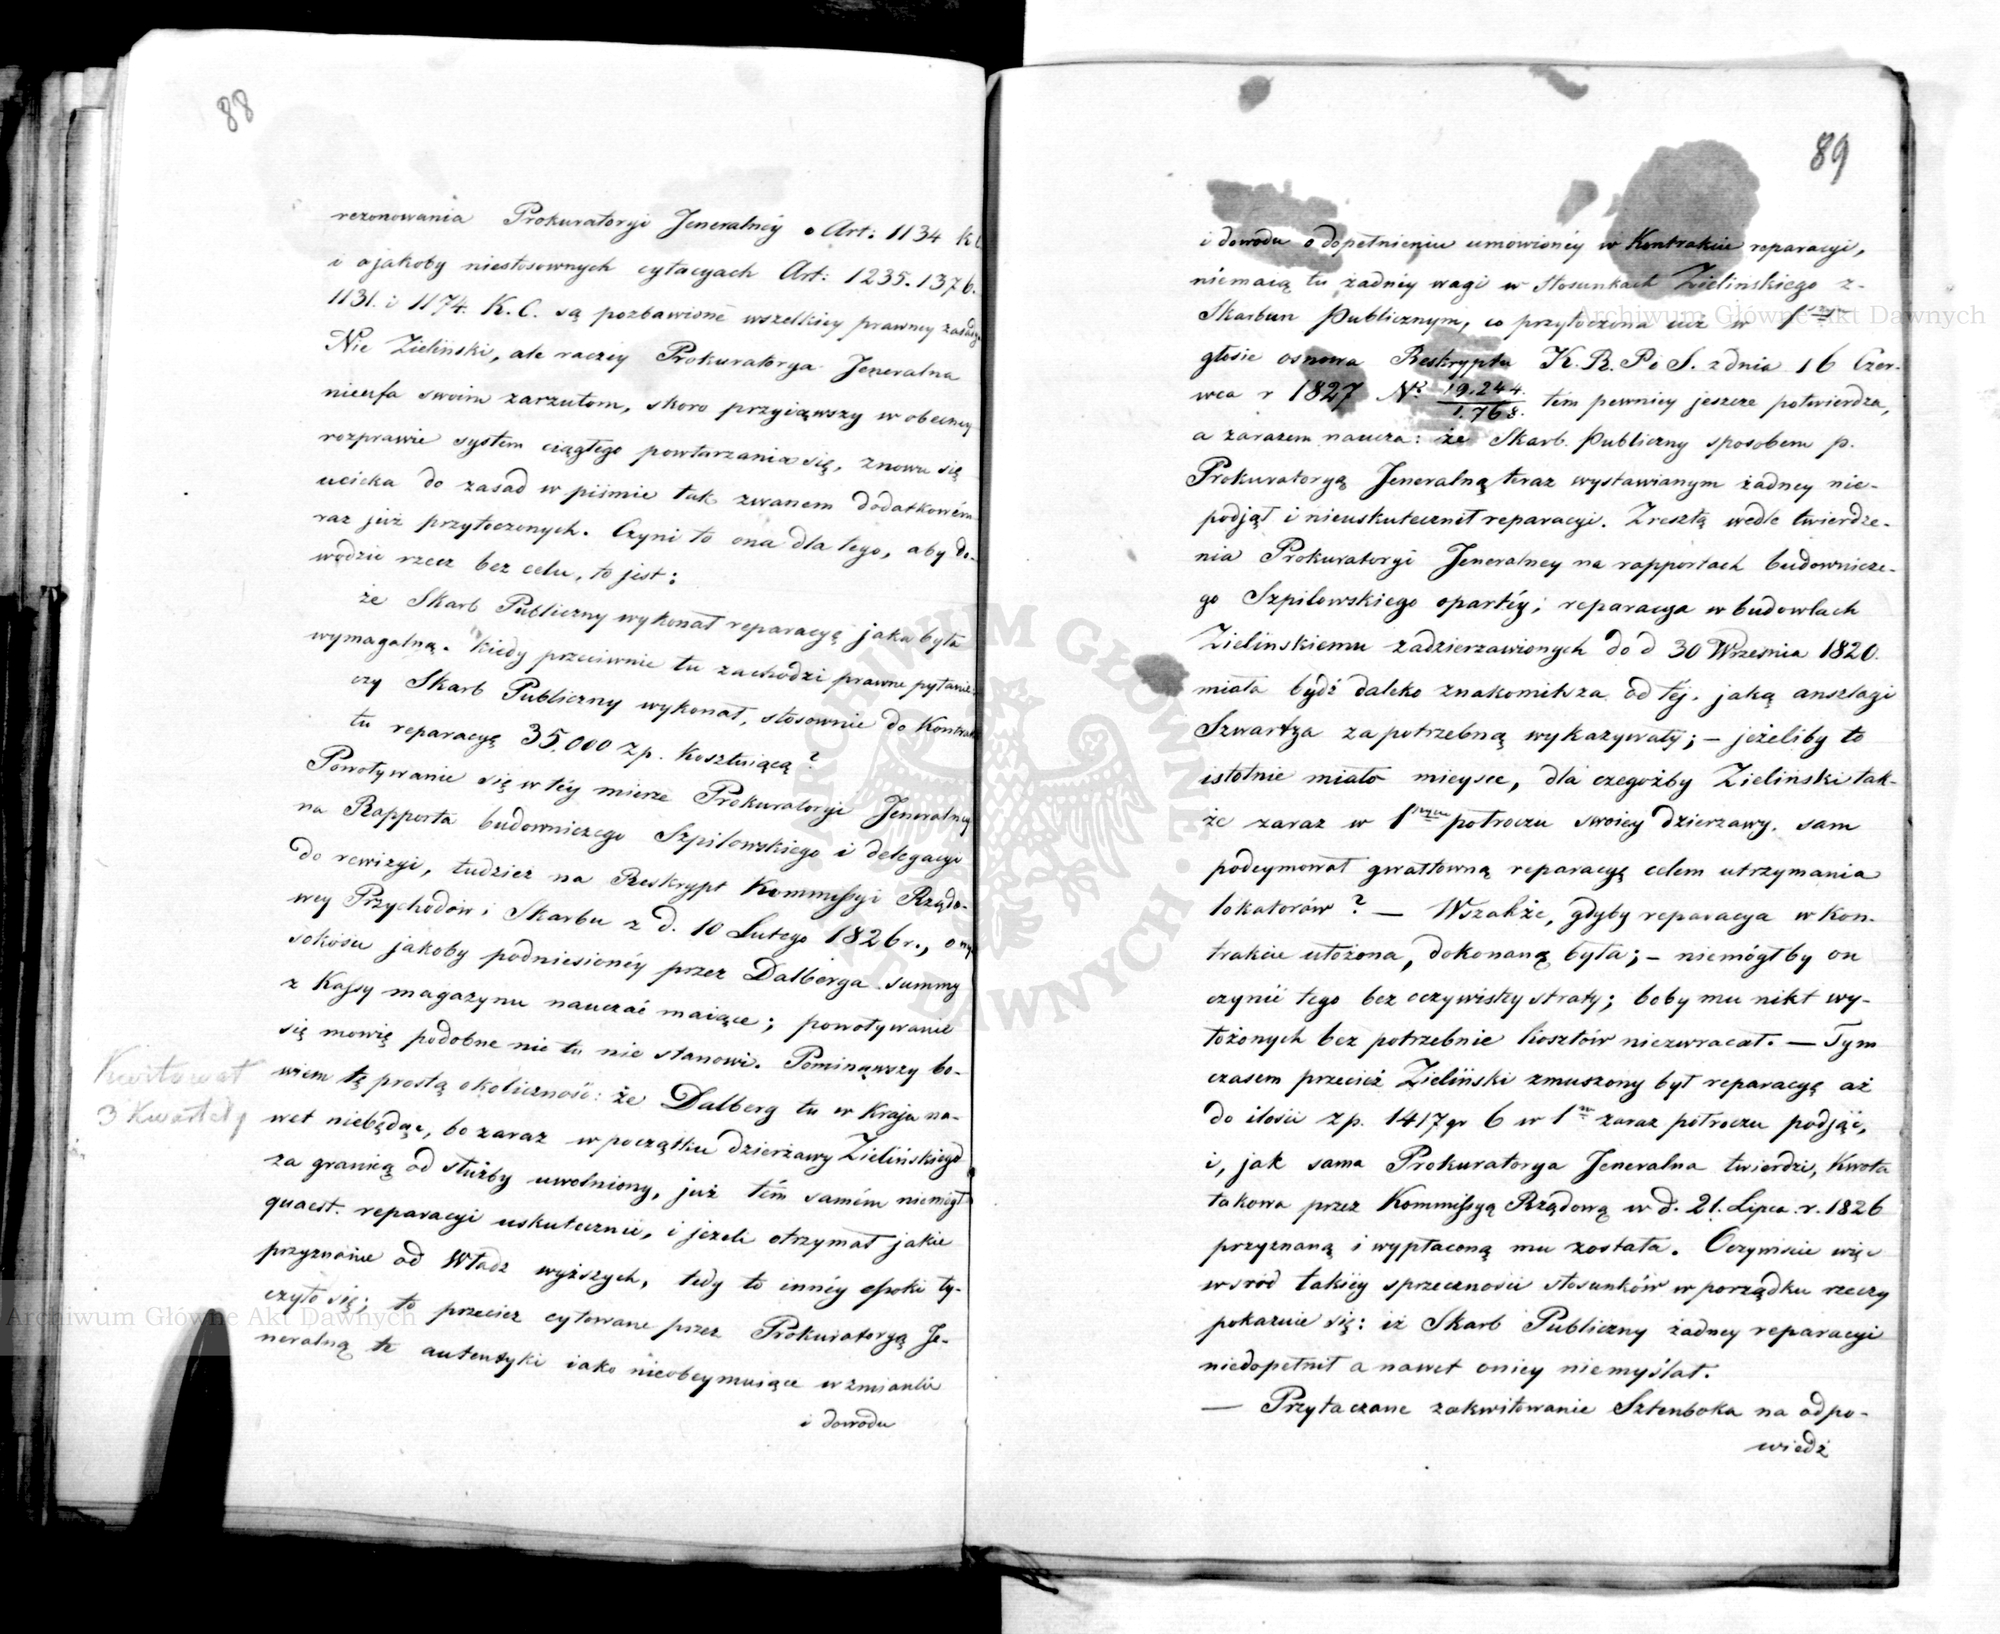 88
rezonowania Prokuratoryi Jeneralnéy o Art: 1134 K C
i o jakoby niestosownych cytacyach Art: 1235. 1376.
1131. i 1174. K. C. są pozbawione wszelkiey prawney zasady.
Nie Zieliński, ale raczey Prokuratorya Jeneralna
nieufa swoim zarzutom, skoro przyiąwszy w obecney
rozprawie system ciągłego powtarzania się, znowu się
ucieka do zasad w piśmie tak zwanem dodatkowém
raz już przytoczonych. Czyni to ona dla tego, aby do-
wodzić rzecz bez celu, to jest:
że Skarb Publiczny wykonał reparacyą jaka była
wymagalną. kiedy przeciwnie tu zachodzi prawne pytanie:
czy Skarb Publiczny wykonał, stosownie do Kontrak
tu reparacyą 35,000 zp. kosztuiącą?
Powoływanie się w téy mierze Prokuratoryi Jeneralney
na Rapporta budowniczego Szpilowskiego i delegacyi
do rewizyi, tudzież na Reskrypt Kommissyi Rządo-
wey Przychodów i Skarbu z d. 10 Lutego 1826 r., o wy
sokości jakoby podniesionéy przez Dalberga summy
z Kassy magazynu nauczać maiące; powoływanie
się mowię podobne nic tu nie stanowi. Pominąwszy bo-
wiem tę prostą okoliczność: że Dalberg tu w Kraju na-
wet niebędąc, bo zaraz w początku dzierżawy Zielińskiego
za granicą od służby uwolniony, już tém samém niemógł
quaest. reparacyi uskutecznić, i jeżeli otrzymał jakie
przyznanie od Władz wyższych, tedy to innéy epoki ty-
czyło się; to przecież cytowane przez Prokuratoryą Je-
neralną te autentyki iako nieobeymuiące wzmianki
i dowodu
Kwitował
3 Kwartały
89
i dowodu o dopełnieniu umówionéy w Kontrakcie reparacyi,
niemaią tu żadnéy wagi w stosunkach Zielińskiego z-
Skarbem Publicznym, co przytoczona już w 1szym
głosie osnowa Reskryptu K. R. P i S. z dnia 16 Czer-
wca r 1827 Nr 19,244/1,768. tém pewniey jeszcze potwierdza,
a zarazem naucza: że Skarb Publiczny sposobem p.
Prokuratoryą Jeneralną teraz wystawianym żadney nie-
podjął i nieuskutecznił reparacyi. Zresztą wedle twierdze-
nia Prokuratoryi Jeneralney na rapportach budownicze-
go Szpilowskiego opartéy; reparacya w budowlach
Zielinskiemu zadzierzawionych do d 30 Września 1820.
miała bydź daleko znakomitsza od téj, jaką anszlagi
Szwartza za potrzebną wykazywały; – jeżeliby to
istotnie miało mieysce, dla czegożby Zieliński tak-
że zaraz w 1szem potroczu swoiey dzierzawy. sam
podeymował gwałtowną reparacyą celem utrzymania
lokatorów? – Wszakże, gdyby reparacya w Kon-
trakcie ułożona, dokonaną była; – niemógłby on
czynić tego bez oczywistey straty; boby mu nikt wy-
łożonych bez potrzebnie kosztów niezwracał. – Tym
czasem przecież Zieliński zmuszony był reparacyą aż
do ilości zp. 1417 gr 6 w 1m zaraz potroczu podjąć,
i, jak sama Prokuratorya Jeneralna twierdzi, Kwota
takowa przez Kommissyą Rządową w d. 21. Lipca r. 1826
przyznaną i wypłaconą mu została. Oczywiście więc
wsród takiéy sprzeczności stosunków w porządku rzeczy
pokazuie się: iż Skarb Publiczny żadney reparacyi
niedopełnił a nawet oniey niemyślał.
– Przytaczane zakwitowanie Sztenboka na odpo-
wiedź
Archiwum Główne Akt Dawnych
Archiwum Główne Akt Dawnych
ARCHIWUM GŁÓWNE AKT DAWNYCH